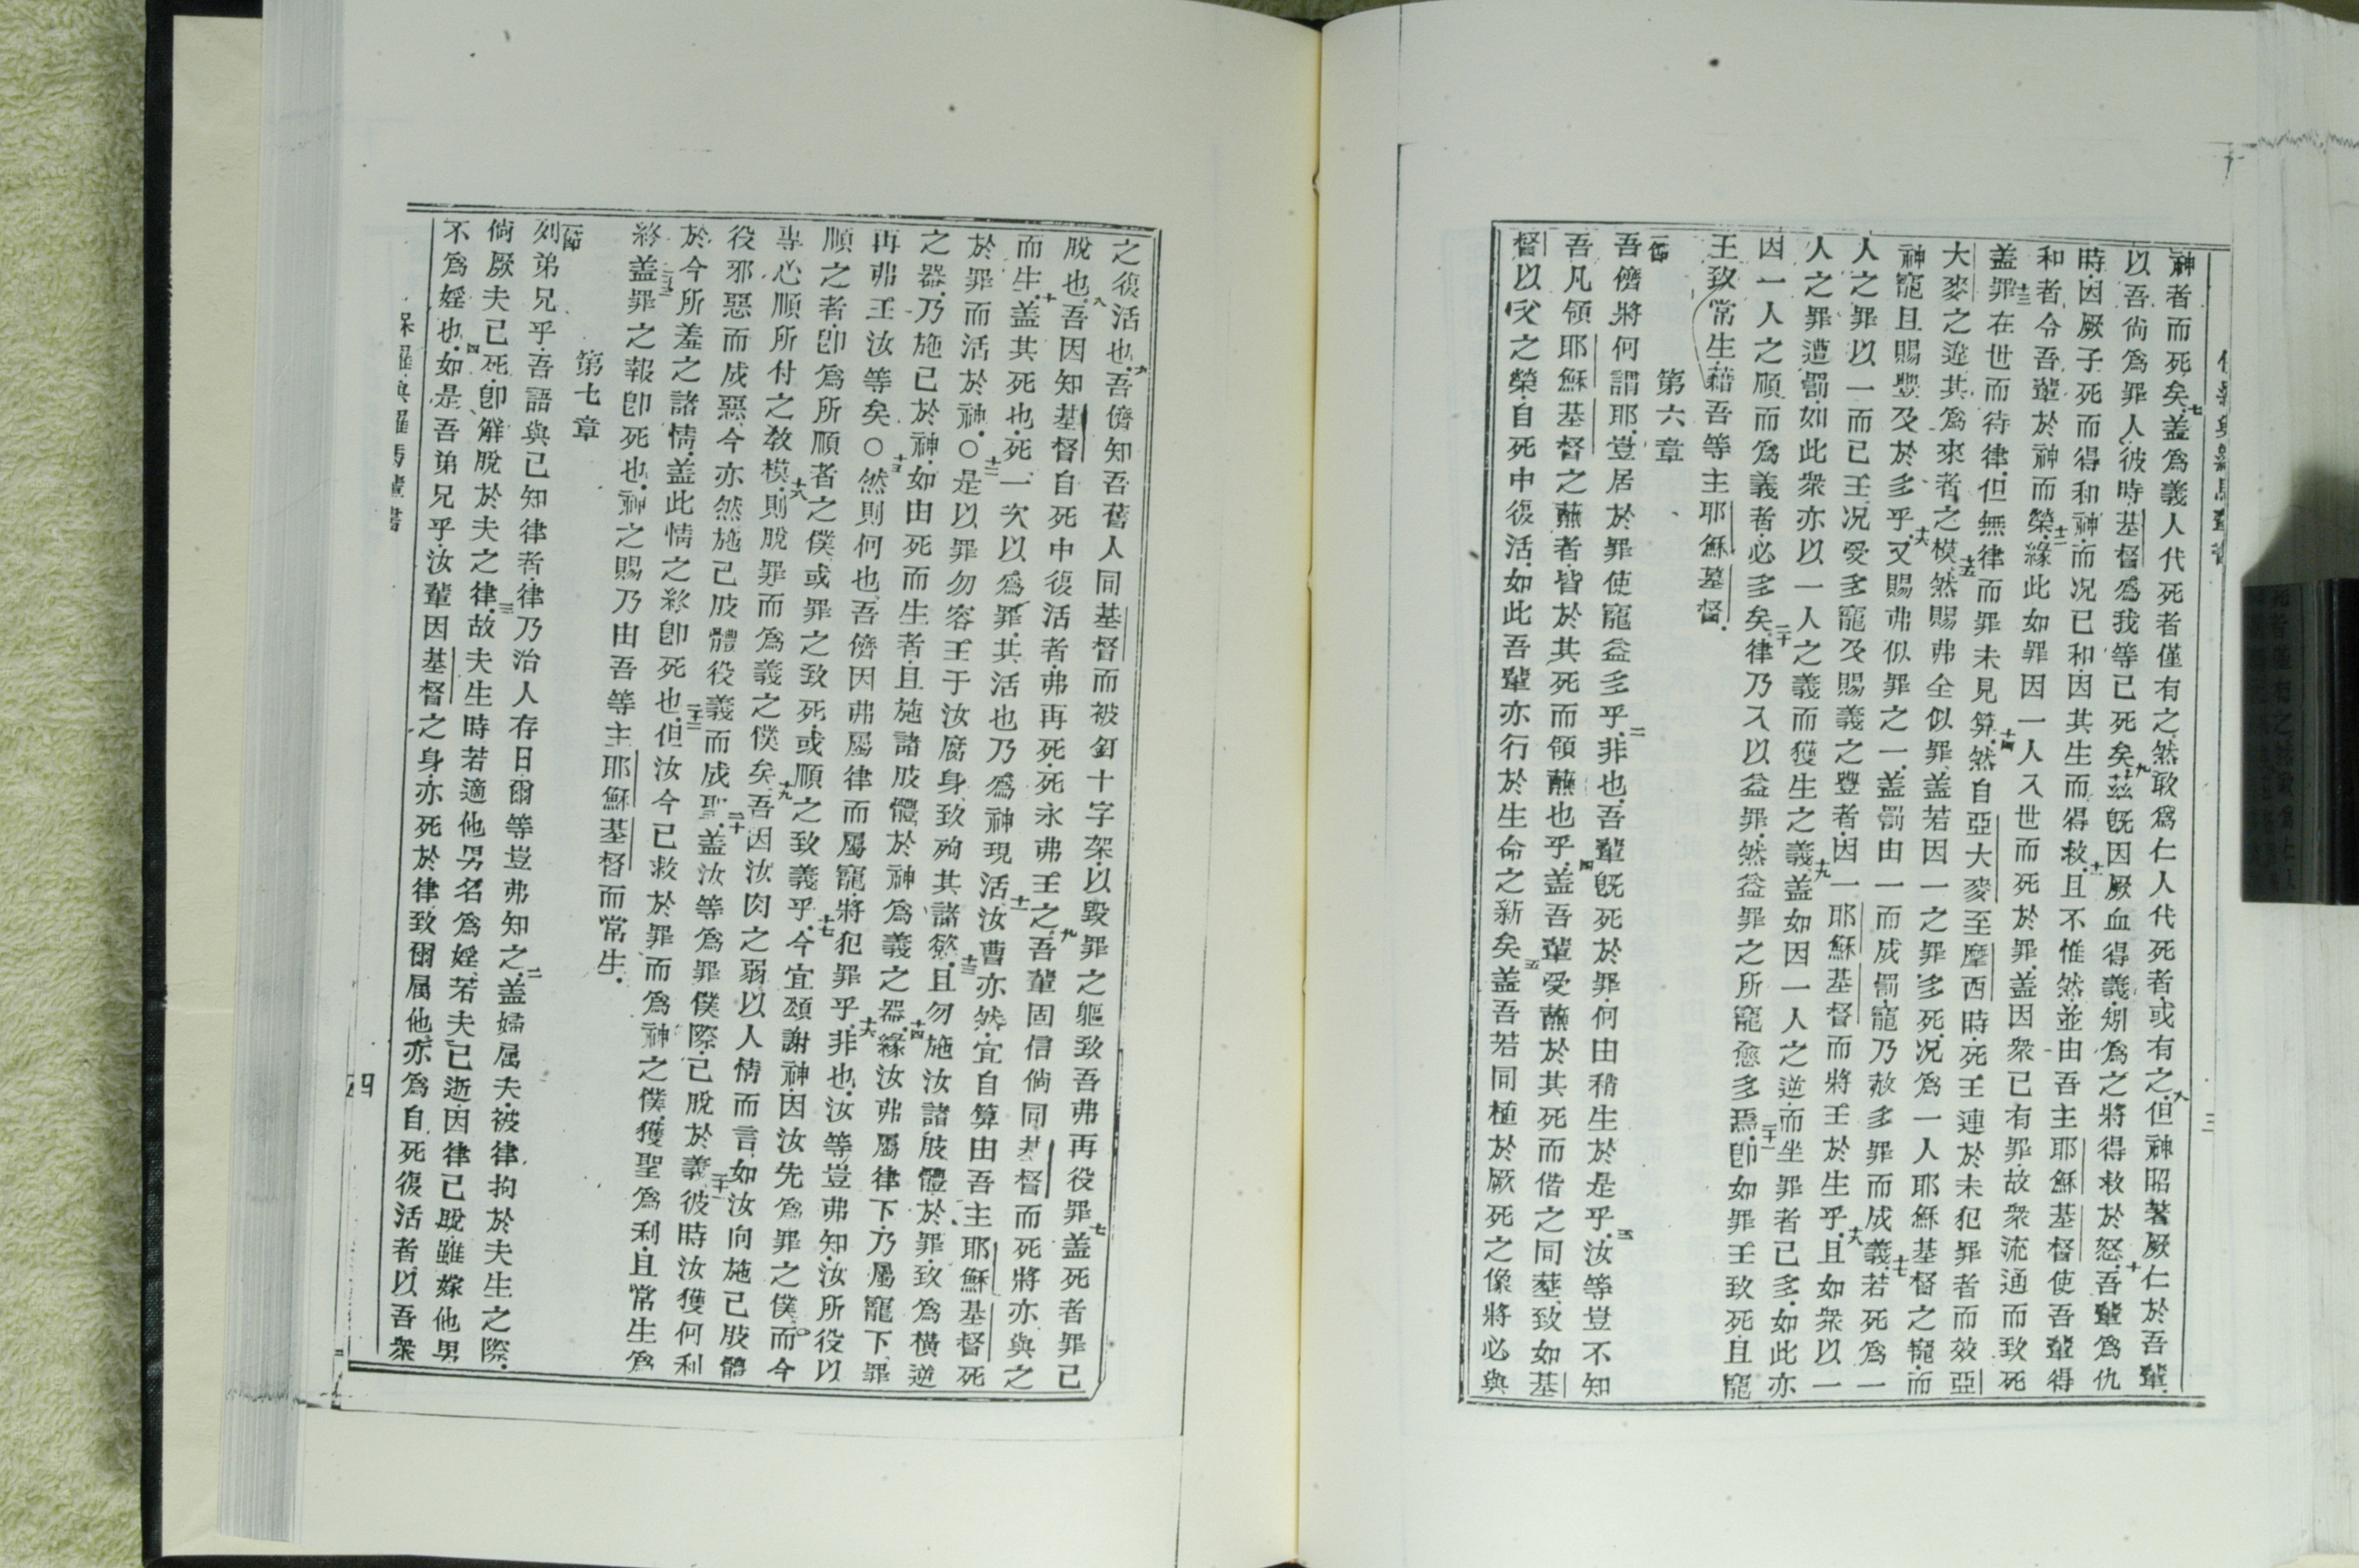 神者而死矣七盖爲義人代死者僅有之然敢爲仁人代死者或有之八但神昭著厥仁於吾輩
以吾倘爲罪人彼時基督爲我等已死矣九茲旣因厥血得義矧爲之將得救於怒十吾輩爲仇
時因厥子死而得和神而况已和因其生而得救十一且不惟然並由吾主耶穌基督使吾輩得
和者令吾輩於神而榮十二緣此如罪因一人入世而死於罪盖因衆已有罪故衆流通而致死
十三盖罪在世而待律但無律而罪未見算十四然自亞大麥至摩西時死王連於未犯罪者而效亞
大麥之逆其爲來者之模十五然賜弗全似罪盖若因一之罪多死况爲一人耶穌基督之寵而
神寵且賜豐及於多乎十六又賜弗似罪之一盖罰由一而成罰寵乃赦多罪而成義十七若死爲一
人之罪以一而已王况受多寵及賜義之豐者因一耶穌基督而將王於生乎十八且如衆以一
人之罪遭罰如此衆亦以一人之義而獲生之義十九盖如因一人之逆而坐罪者已多如此亦
因一人之順而爲義者必多矣二十律乃入以益罪然益罪之所寵愈多焉二十一卽如罪王致死且寵
王致常生藉吾等主耶穌基督
第六章
一節吾儕將何謂耶豈居於罪使寵益多乎二非也吾輩旣死於罪何由稍生於是乎三汝等豈不知
吾凡領耶穌基督之蘸者皆於其死而領蘸也乎四盖吾輩受蘸於其死而偕之同塟致如基
督以父之榮自死中復活如此吾輩亦行於生命之新矣五盖吾若同植於厥死之像將必與
三
之復活也六吾儕知吾舊人同基督而被釘十字架以毀罪之軀致吾弗再役罪七盖死者罪已
脫也八吾因知基督自死中復活者弗再死死永弗王之九吾輩固信倘同基督而死將亦與之
而生十盖其死也死一次以爲罪其活也乃爲神現活十一汝曹亦然宜自算由吾主耶穌基督死
於罪而活於神○十二是以罪勿容王于汝腐身致殉其諸慾十三且勿施汝諸肢體於罪致爲橫逆
之器乃施己於神如由死而生者且施諸肢體於神爲義之器十四緣汝弗屬律下乃屬寵下罪
再弗王汝等矣○十五然則何也吾儕因弗屬律而屬寵將犯罪乎十六非也汝等豈弗知汝所役以
順之者卽爲所順者之僕或罪之致死或順之致義乎十七今宜頌謝神因汝先爲罪之僕而今
專心順所付之教模十八則脫罪而爲義之僕矣十九吾因汝肉之弱以人情而言如汝向施己肢體
役邪惡而成惡今亦然施己肢體役義而成聖二十盖汝等爲罪僕際已脫於義二十一彼時汝獲何利
於今所羞之諸情盖此情之終卽死也二十二但汝今已救於罪而爲神之僕獲聖爲利且常生爲
終二十三盖罪之報卽死也神之賜乃由吾等主耶穌基督而常生
第七章
一節列弟兄乎吾語與已知律者律乃治人存日爾等豈弗知之二盖婦屬夫被律拘於夫生之際
倘厥夫已死卽解脫於夫之律三故夫生時若適他男名爲婬若夫已逝因律已脫雖嫁他男
不爲婬也四如是吾弟兄乎汝輩因基督之身亦死於律致爾屬他亦爲自死復活者以吾衆
保羅與羅馬輩書
四